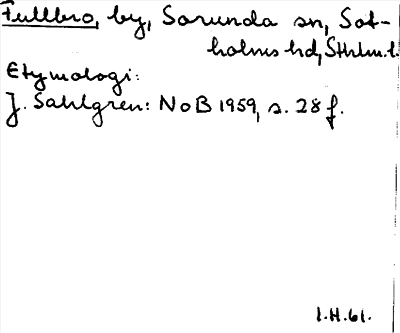 Fullbro, by, Sorunda sn, Sot-
holms hd, Sthlm.l.
Etymologi:
J. Sahlgren: NoB 1959, s. 28 f.
I.H.61.